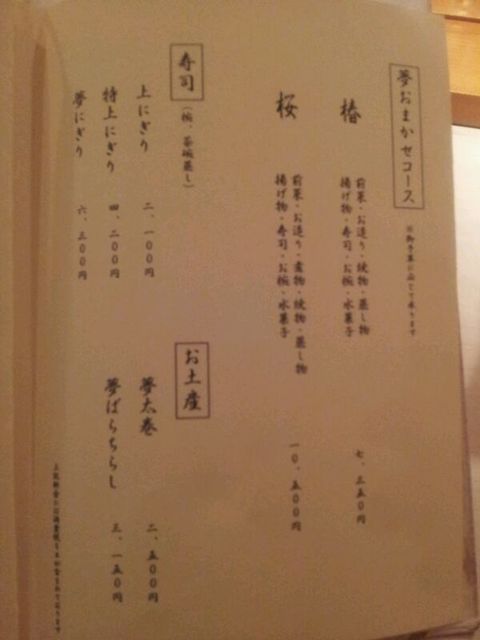 夢おまかせコース
※御予算に応じて承ります
椿
前菜・お造り・焼物・蒸し物
揚げ物・寿司・お椀・水菓子
七、三五〇円
桜
前菜・お造り・煮物・焼物・蒸し物
揚げ物・寿司・お椀・水菓子
一〇、五〇〇円
寿司
(椀、茶碗蒸し)
上にぎり
二、一〇〇円
特上にぎり
四、二〇〇円
夢にぎり
六、三〇〇円
お土産
夢太巻
二、五〇〇円
夢ばらちらし
三、一五〇円
上記料金に消費税を含めております